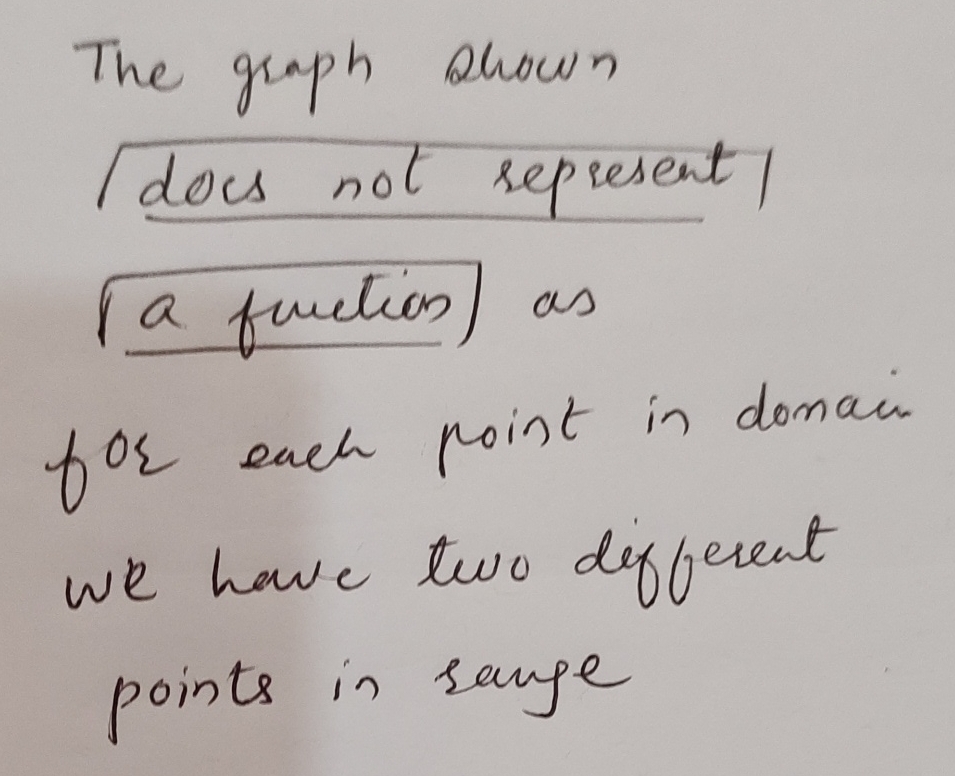 The graph shown
does not represent
a function as
for each point in domain
we have two different
points in range